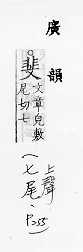 廣韻
斐
文章兒敷
尾切七
上聲
(七尾、P.255